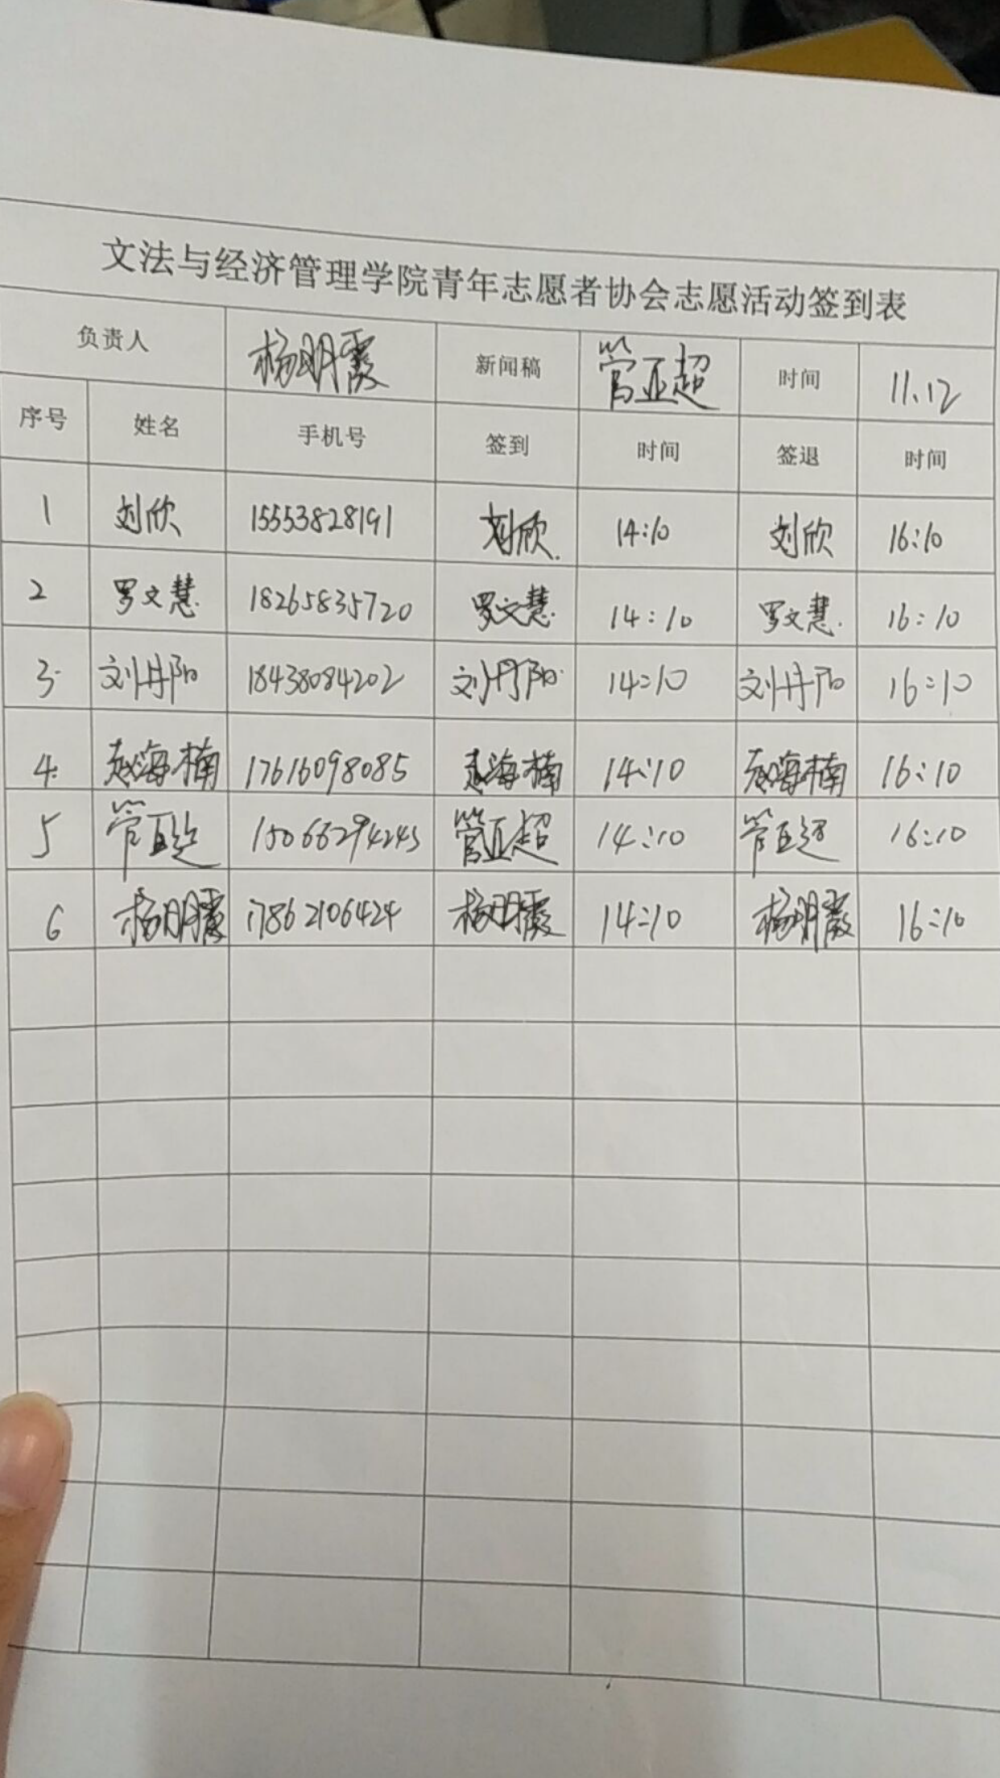 文法与经济管理学院青年志愿者协会志愿活动签到表
负责人 杨明霞 新闻稿 管亚超 时间 11.12
序号 姓名 手机号 签到 时间 签退 时间
1 刘欣 15553828191 刘欣 14:10 刘欣 16:10
2 罗文慧 18265835720 罗文慧 14:10 罗文慧 16:10
3 刘丹阳 18438084202 刘丹阳 14:10 刘丹阳 16:10
4 赵海楠 17616098085 赵海楠 14:10 赵海楠 16:10
5 管亚超 15066294243 管亚超 14:10 管亚超 16:10
6 杨明霞 17862106424 杨明霞 14:10 杨明霞 16:10